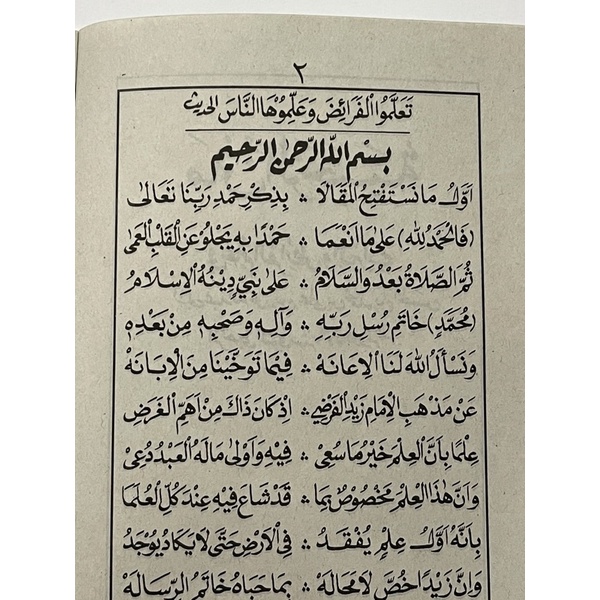 ٢
تَعَلَّمُوا الْفَرَائِضَ وَعَلِّمُوْهَا النَّاسَ الحديث
بِسْمِ اللهِ الرَّحْمٰنِ الرَّحِيمِ
اَوَّلُ مَا نَسْتَفْتِحُ الْمَقَالَا ۞ بِذِكْرِ حَمْدِ رَبِّنَا تَعَالَى
(فَالْحَمْدُ لِلّٰهِ) عَلَى مَا اَنْعَمَا ۞ حَمْدًا بِهِ يَجْلُوْ عَنِ الْقَلْبِ الْعَمَى
ثُمَّ الصَّلَاةُ بَعْدُ وَالسَّلَامُ ۞ عَلَى نَبِيٍّ دِيْنُهُ الْاِسْلَامُ
(مُحَمَّدٍ) خَاتَمِ رُسْلِ رَبِّهِ ۞ وَآلِهِ وَصَحْبِهِ مِنْ بَعْدِهِ
وَنَسْأَلُ اللهَ لَنَا الْاِعَانَهْ ۞ فِيْمَا تَوَخَّيْنَا مِنَ الْاِبَانَهْ
عَنْ مَذْهَبِ الْاِمَامِ زَيْدِ الْفَرَضِيْ ۞ اِذْ كَانَ ذَاكَ مِنْ اَهَمِّ الْغَرَضِ
عِلْمًا بِاَنَّ الْعِلْمَ خَيْرُ مَا سُعِيْ ۞ فِيْهِ وَاَوْلَى مَا لَهُ الْعَبْدُ دُعِيْ
وَاَنَّ هٰذَا الْعِلْمَ مَخْصُوْصٌ بِمَا ۞ قَدْ شَاعَ فِيْهِ عِنْدَ كُلِّ الْعُلَمَا
بِاَنَّهُ اَوَّلُ عِلْمٍ يُفْقَدُ ۞ فِي الْاَرْضِ حَتَّى لَا يَكَادُ يُوْجَدُ
وَاِنَّ زَيْدًا خُصَّ لَا مَحَالَهْ ۞ بِمَا حَبَاهُ خَاتَمُ الرِّسَالَهْ